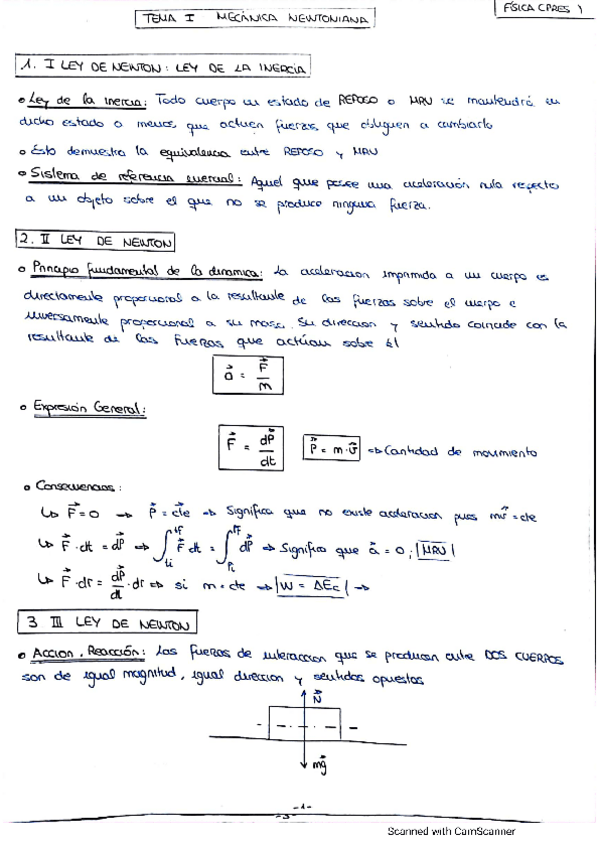 FÍSICA CPRES 1
TEMA I MECÁNICA NEWTONIANA
1. I LEY DE NEWTON: LEY DE LA INERCIA
• Ley de la inercia: Todo cuerpo en estado de REPOSO o MRU se mantendrá en
dicho estado a menos, que actuen fuerzas, que obliguen a cambiarlo
• Esto demuestra la equivalencia entre REPOSO y MRU
• Sistema de referencia inercial: Aquel que posee una aceleración nula respecto
a un objeto sobre el que no se produce ninguna fuerza.
2. II LEY DE NEWTON
• Principio fundamental de la dinamica: La aceleracion imprimida a un cuerpo es
directamente proporcional a la resultante de las fuerzas sobre el cuerpo e
inversamente proporcional a su masa. Su direccion y sentido coincide con la
resultante de las fuerzas que actúan sobre él
a⃗ = F⃗/m
• Expresión General:
F⃗ = dP⃗/dt P⃗ = m·v⃗ => Cantidad de movimiento
• Consecuencias:
↳ F⃗ = 0 → P⃗ = cte → Significa que no existe aceleracion pues mv⃗ = cte
↳ F⃗·dt = dP⃗ => ∫ti tf F⃗ dt = ∫Pi Pf dP⃗ => Significa que a⃗ = 0; |MRU|
↳ F⃗·dr = dP⃗/dt·dr => si m = cte → |W = ΔEc| →
3 III LEY DE NEWTON
• Accion, Reacción: Las fuerzas de interaccion que se producen entre DOS CUERPOS
son de igual magnitud, igual direccion y sentidos opuestos
N⃗
mg⃗
-1-
Scanned with CamScanner